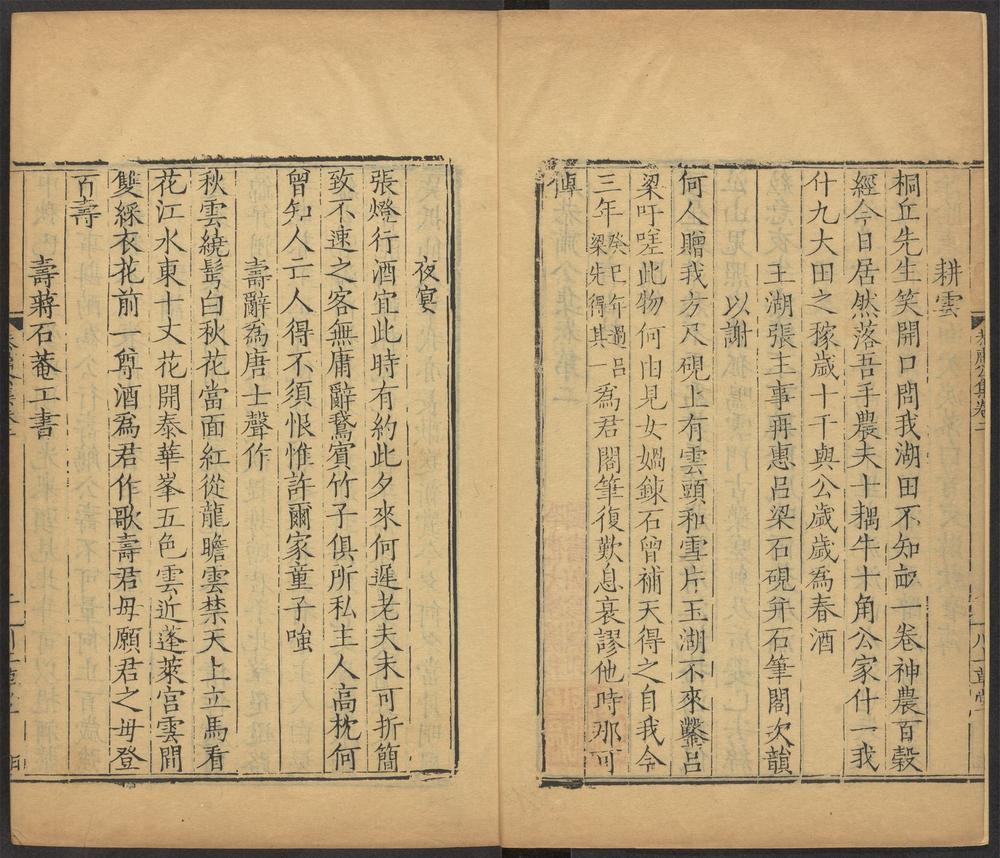 耕雲
桐丘先生笑開口問我湖田不知畝一卷神農百穀
經今日居然落吾手農夫十耦牛十角公家什一我
什九大田之稼歲十千與公歲歲為春酒
玉湖張主事再惠呂梁石硯并石筆閣次韻
以謝
何人贈我方尺硯上有雲頭和雪片玉湖不來鑿呂
梁吁嗟此物何由見女媧鍊石曾補天得之自我今
三年癸巳年過呂梁先得其一為君閣筆復歎息衰謬他時那可
傳
夜宴
張燈行酒宜此時有約此夕來何遲老夫未可折簡
致不速之客無庸辭鵞賓竹子俱所私主人高枕何
曾知人亡人得不須恨惟許爾家童子嗤
壽辭為唐士聲作
秋雲繞髩白秋花當面紅從龍瞻雲禁天上立馬看
花江水東十丈花開泰華峯五色雲近蓬萊宮雲間
雙綵衣花前一尊酒為君作歌壽君母願君之母登
百壽
壽蔣石菴工書